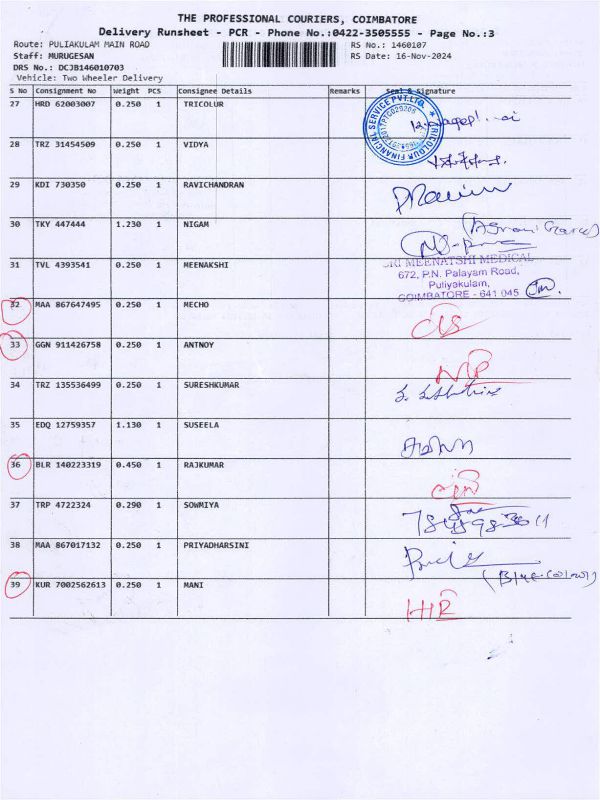 THE PROFESSIONAL COURIERS, COIMBATORE
Delivery Runsheet - PCR - Phone No.:0422-3505555 - Page No.:3
Route: PULIAKULAM MAIN ROAD RS No.: 1460107
Staff: MURUGESAN RS Date: 16-Nov-2024
DRS No.: DCJB146010703
Vehicle: Two Wheeler Delivery
S No Consignment No Weight PCS Consignee Details Remarks Seal & Signature
27 HRD 62003007 0.250 1 TRICOLUR
28 TRZ 31454509 0.250 1 VIDYA
29 KDI 730350 0.250 1 RAVICHANDRAN
30 TKY 447444 1.230 1 NIGAM
31 TVL 4393541 0.250 1 MEENAKSHI
SRI MEENATSHI MEDICAL
672, P.N. Palayam Road,
Puliyakulam,
COIMBATORE - 641 045
32 MAA 867647495 0.250 1 MECHO
33 GGN 911426758 0.250 1 ANTNOY
34 TRZ 135536499 0.250 1 SURESHKUMAR
35 EDQ 12759357 1.130 1 SUSEELA
36 BLR 140223319 0.450 1 RAJKUMAR
37 TRP 4722324 0.290 1 SOWMIYA
38 MAA 867017132 0.250 1 PRIYADHARSINI
39 KUR 7002562613 0.250 1 MANI